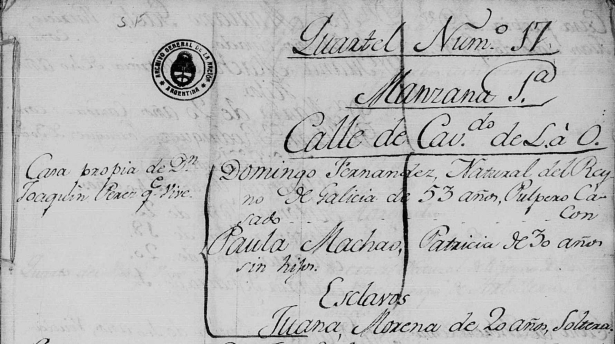 Quartel Num.º 17
Manzana 1.ª
Calle de Cav.do de Là O.
Casa propia de Dn
Joaquin Perez q.e Vive
Domingo Fernandez, Natural del Rey
no de Galicia de 53 años, Pulpero Ca
sado Con
Paula Machao, Patricia de 30 años
sin hijos.
Esclavos
Juana, Morena de 20 años, Soltera
ARCHIVO GENERAL DE LA NACION
ARGENTINA